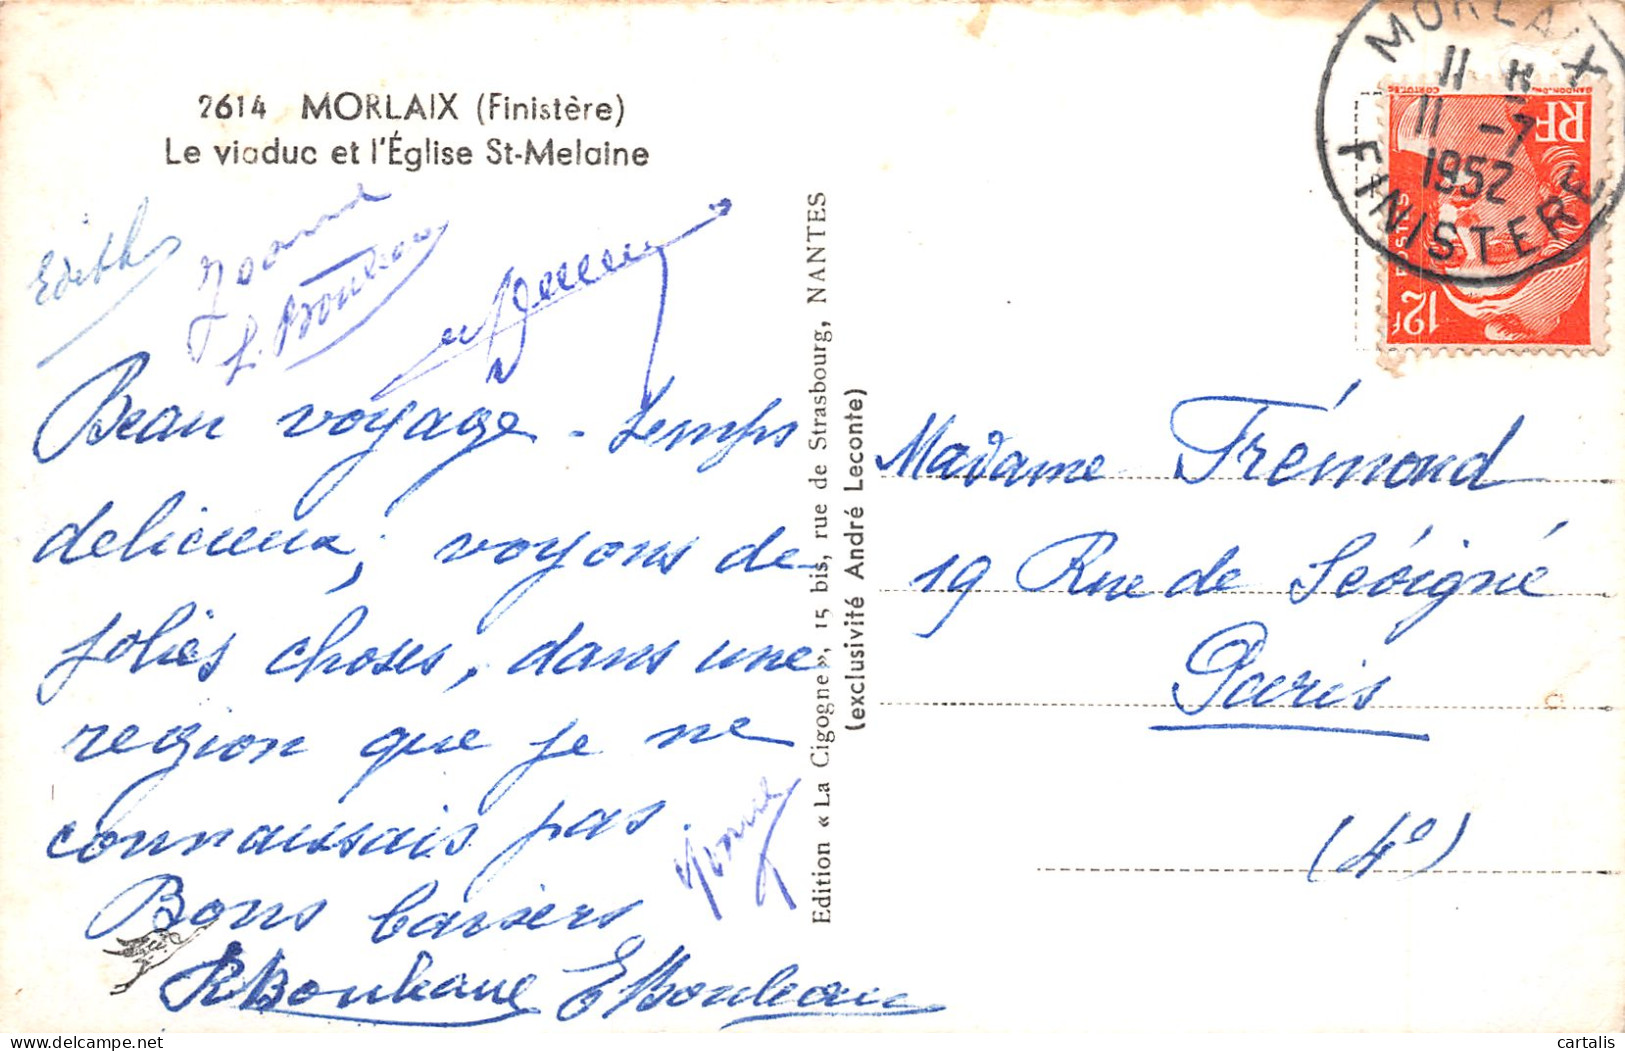 2614 MORLAIX (Finistère)
Le viaduc et l'Église St-Melaine
Edith
Beau voyage - temps
delicieux, voyons de
jolies choses, dans une
region que je ne
connaissais pas.
Bons baisers
Edition « La Cigogne », 15 bis, rue de Strasbourg, NANTES
(exclusivité André Leconte)
MORLAIX
11 H
11 -7
1952
FINISTERE
RF
POSTES
12f
Madame Frémond
19 Rue de Sévigné
Paris
(4°)
cartalis